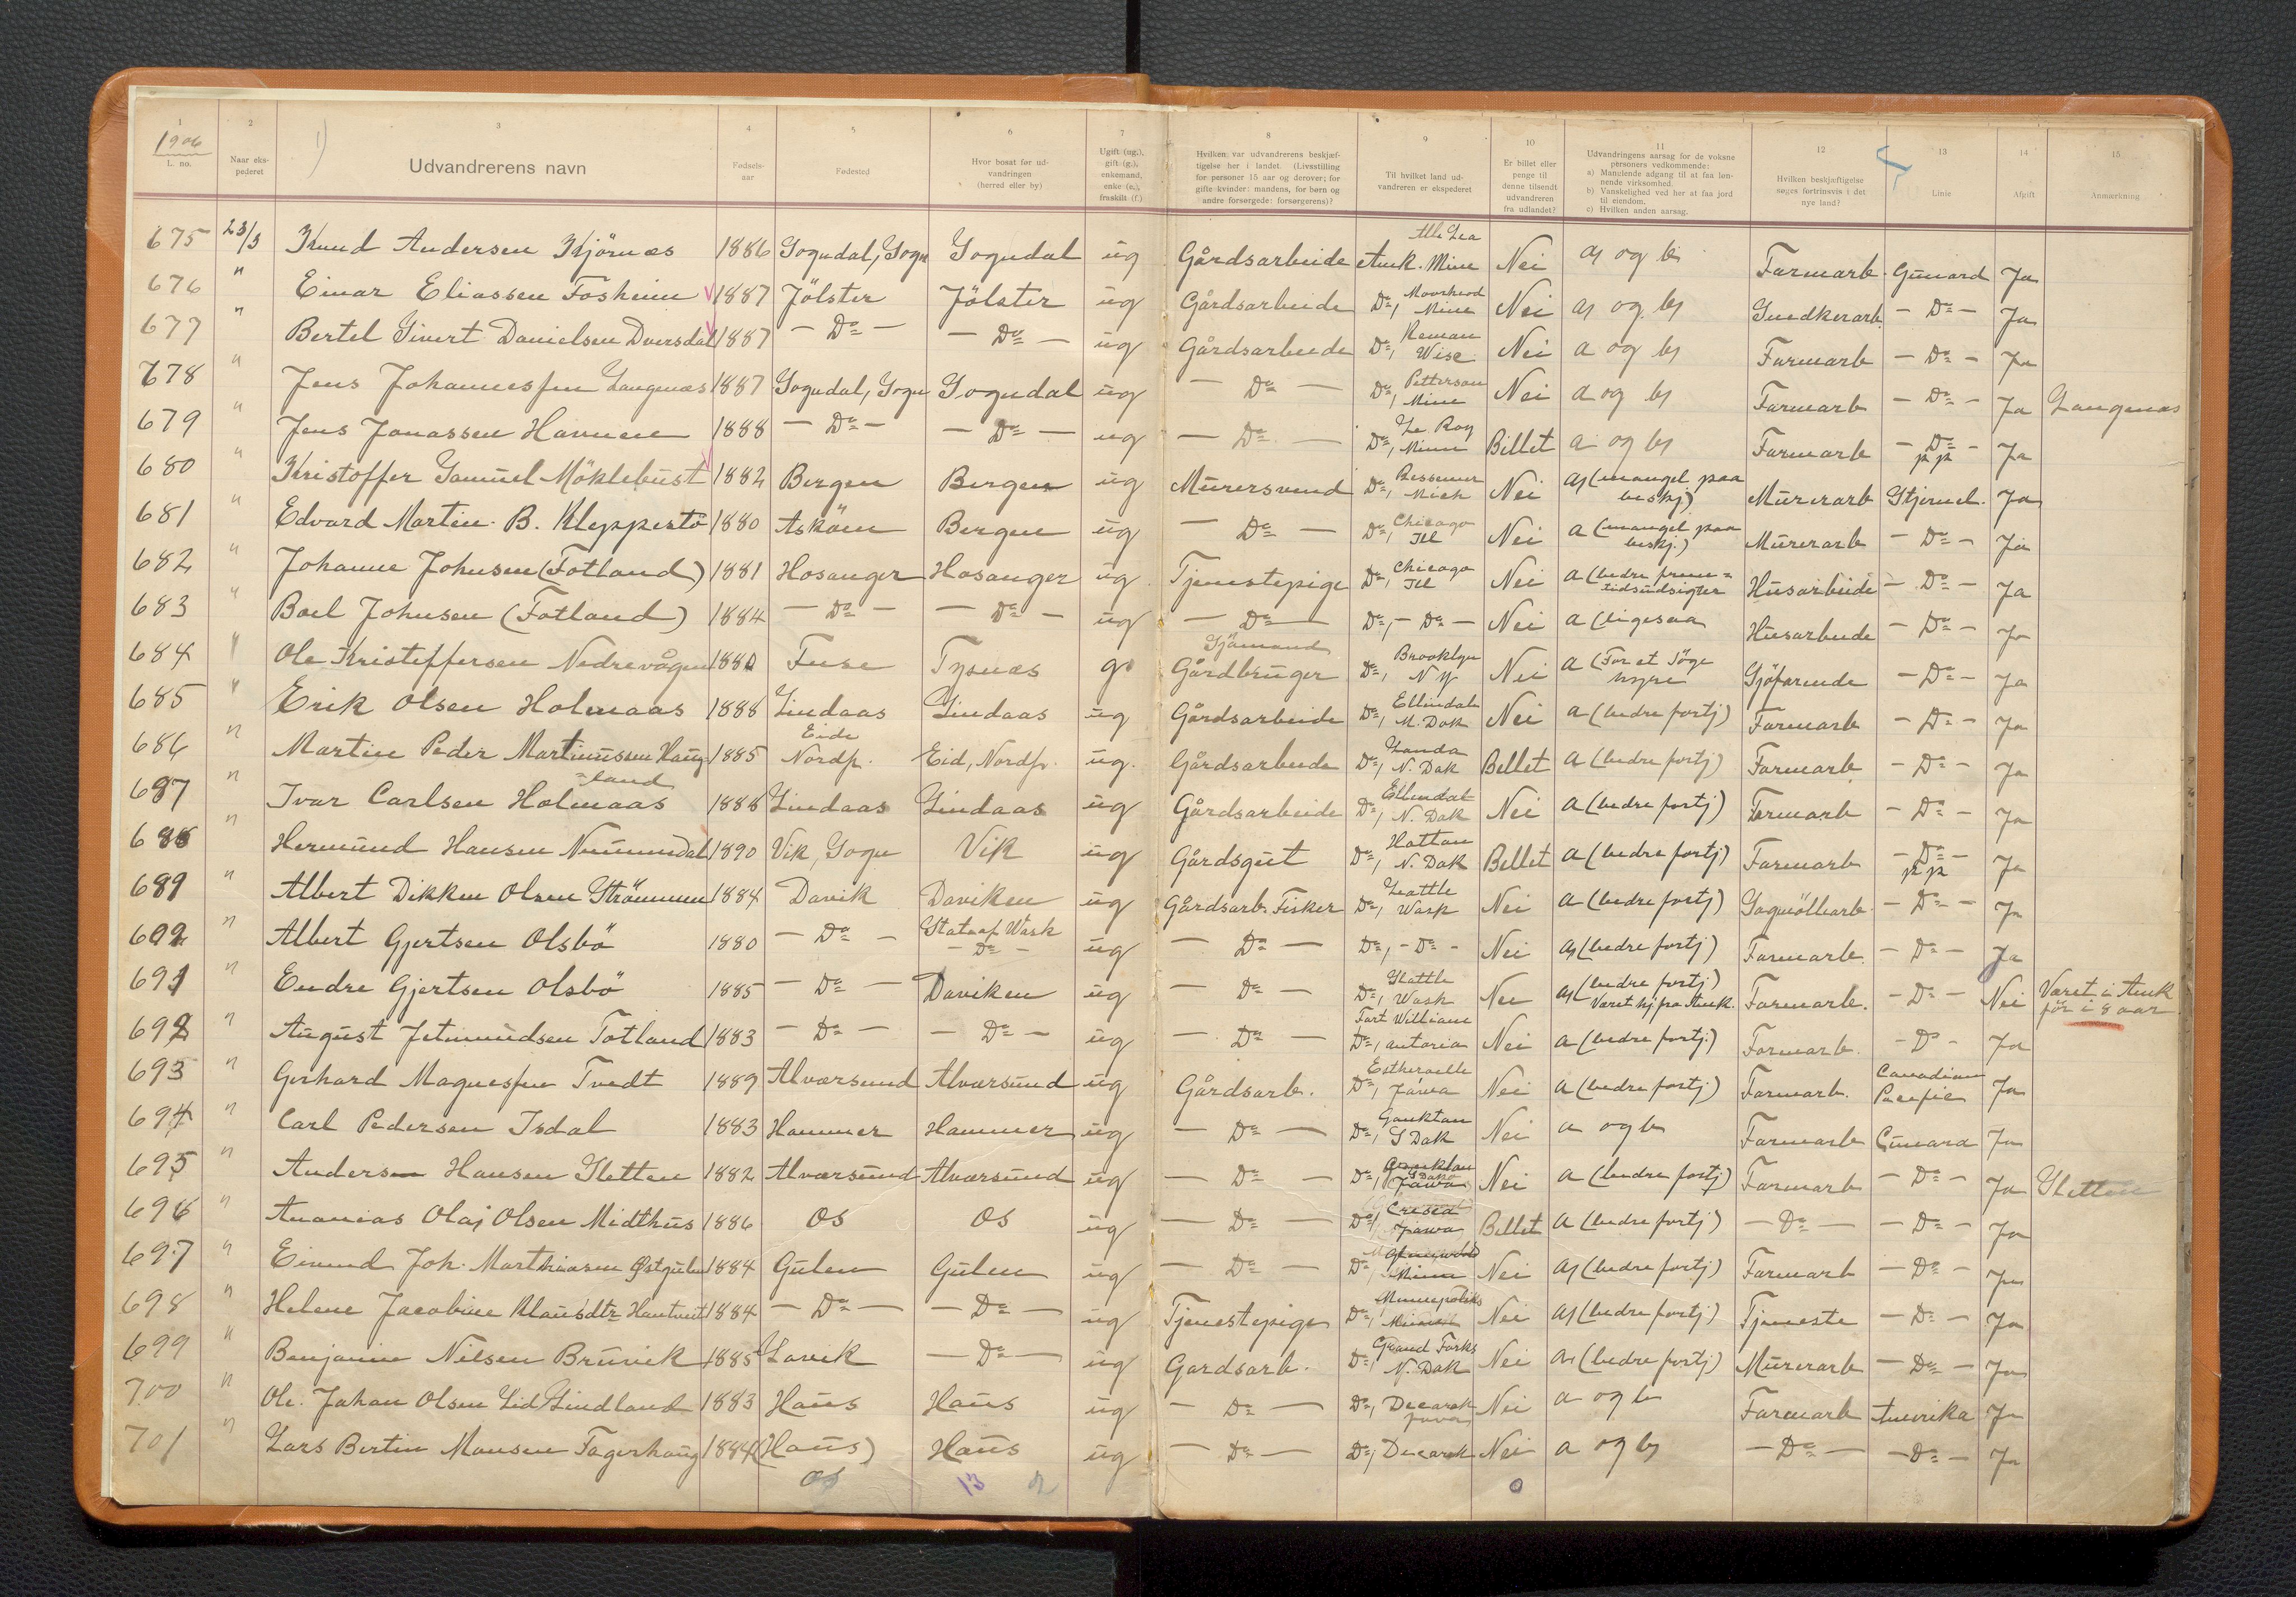 1 2 3 4 5 6 7 8 9 10 11 12 13 14 15
1906
L. no. Naar eks-pederet Udvandrerens navn Fødsels-aar Fødested Hvor bosat før ud-vandringen (herred eller by) Ugift (ug.), gift (g.), enkemand, enke (e.), fraskilt (f.) Hvilken var udvandrerens beskjæf-tigelse her i landet. (Livsstilling for personer 15 aar og derover; for gifte kvinder: mandens, for børn og andre forsørgede: forsørgerens)? Til hvilket land ud-vandreren er ekspederet Er billet eller penge til denne tilsendt udvandreren fra udlandet? Udvandringens aarsag for de voksne personers vedkommende: a) Manglende adgang til at faa løn-nende virksomhed. b) Vanskelighed ved her at faa jord til eiendom. c) Hvilken anden aarsag. Hvilken beskjæftigelse søges fortrinsvis i det nye land? Linie Afgift Anmærkning
675 23/3 Knud Andersen Kjörnæs 1886 Sogndal, Sogn Sogndal ug Gårdsarbeide Amk. Minn Nei a og b Farmarb. Cunard Ja
676 " Einar Eliassen Fosheim 1887 Jölster Jölster ug Gårdsarbeide Do, Moorhead Minn Nei a og b Snedkerarb. - Do - Ja
677 " Bertel Sivert Danielsen Dversdal 1887 - Do - - Do - ug Gårdsarbeide Do, Wisc Nei a og b Farmarb - Do - Ja
678 " Jens Johannessen Langenæs 1887 Sogndal, Sogn Sogndal ug - Do - Do, Petterson Minn Nei a og b Farmarb - Do - Ja Langenæs
679 " Jens Jonassen Hamnen 1888 - Do - - Do - ug - Do - Do, Le Roy Minn Billet a og b Farmarb - Do - Ja
680 " Kristoffer Samuel Möklebust 1882 Bergen Bergen ug Murersvend Do, Bessemer Mich Nei a (mangel paa beskj) Murerarb pp Stjernel. Ja
681 " Edvard Martin B. Kleppestö 1880 Asköen Bergen ug - Do - Do, Chicago Ill Nei a (mangel paa beskj.) Murerarb - Do - Ja
682 " Johanne Johnsen (Fotland) 1881 Hosanger Hosanger ug. Tjenestepige Do, Chicago Ill Nei a (bedre frem=tidsudsigter Husarbeide - Do - Ja
683 " Boel Johnsen (Fotland) 1884 - Do - - Do - ug - Do - Do, - Do - Nei a (ligesaa Husarbeide - Do - Ja
684 " Ole Kristoffersen Nedrevågen 1880 Fuse Tysnæs g. Sjömand Gårdbruger Do, Brooklyn NY Nei a (For at söge hyre Sjöfarende - Do - Ja
685 " Erik Olsen Holmaas 1888 Lindaas Lindaas ug Gårdsarbeide Do, Ellendale N. Dak Nei a (bedre fortj) Farmarb - Do - Ja
686 " Martin Peder Martinussen Haug=land 1885 Eide Nordf. Eid, Nordf. ug. Gårdsarbeide Do, Landa N. Dak Billet a (bedre fortj) Farmarb - Do - Ja
687 " Ivar Carlsen Holmaas 1888 Lindaas Lindaas ug Gårdsarbeide Do, Ellendal N. Dak Nei a (bedre fortj) Farmarb - Do - Ja
688 " Hermund Hansen Nummedal 1890 Vik, Sogn Vik ug Gårdsgut Do, Hatton N. Dak Billet a (bedre fortj) Farmarb - Do - Ja
689 " Albert Dikken Olsen Strömmen 1884 Davik Daviken ug Gårdsarb. Fisker Do, Seattle Wash Nei a (bedre fortj) Sagmöllearb. pp - Do - Ja
690 " Albert Gjertsen Olsbö 1880 - Do - Stat af Wash - Do - ug - Do - Do, - Do - Nei a (bedre fortj) Farmarb. - Do - Ja
691 " Endre Gjertsen Olsbö 1885 - Do - Daviken ug - Do - Do, Seattle Wash Nei a (bedre fortj) Været hj fra Amk. Farmarb. - Do - Nei Været i Amk för i 8 aar
692 " August Jetmundsen Totland 1883 - Do - - Do - ug - Do - Fort William Do, antario Nei a (bedre fortj.) Farmarb. - Do - Ja
693 " Gerhard Magnessen Tvedt 1889 Alværsund Alværsund ug Gårdsarb. Do, Estherville Jawa Nei a (bedre fortj) Farmarb. Canadian Pacific Ja
694 " Carl Pedersen Isdal 1883 Hammer Hammer ug - Do - Do, S Dak Nei a og b Farmarb Cunard Ja
695 " Anders Hansen Sletten 1882 Alværsund Alværsund ug - Do - Do, Jawa Nei a (bedre fortj) Farmarb - Do - Ja Sletten
696 " Ananias Olaj Olsen Midthus 1886 Os Os ug - Do - Do, Jawa Billet a (bedre fortj) - Do - - Do - Ja
697 " Eimund Joh. Marthinsen Østgulen 1884 Gulen Gulen ug - Do - Do, Minn Nei a (bedre fortj) Farmarb - Do - Ja
698 " Helene Jacobine Klausdtr Hantveit 1884 - Do - - Do - ug Tjenestepige Do, Minneapolis Minn Nei a (bedre fortj) Tjeneste - Do - Ja
699 " Benjamin Nilsen Bruvik 1885 Lavik - Do - ug Gardsarb. Do, Grand Forks N. Dak Nei a (bedre fortj) Murerarb - Do - Ja
700 " Ole Johan Olsen Lid Lindland 1883 Haus Haus ug - Do - Do, Decorah Jowa Nei a og b Farmarb Amerika Ja
701 " Lars Bertin Monsen Fagerhaug 1884 (Haus) Os Haus ug - Do - Do, Decorah Nei a og b - Do - - Do - Ja
13 2